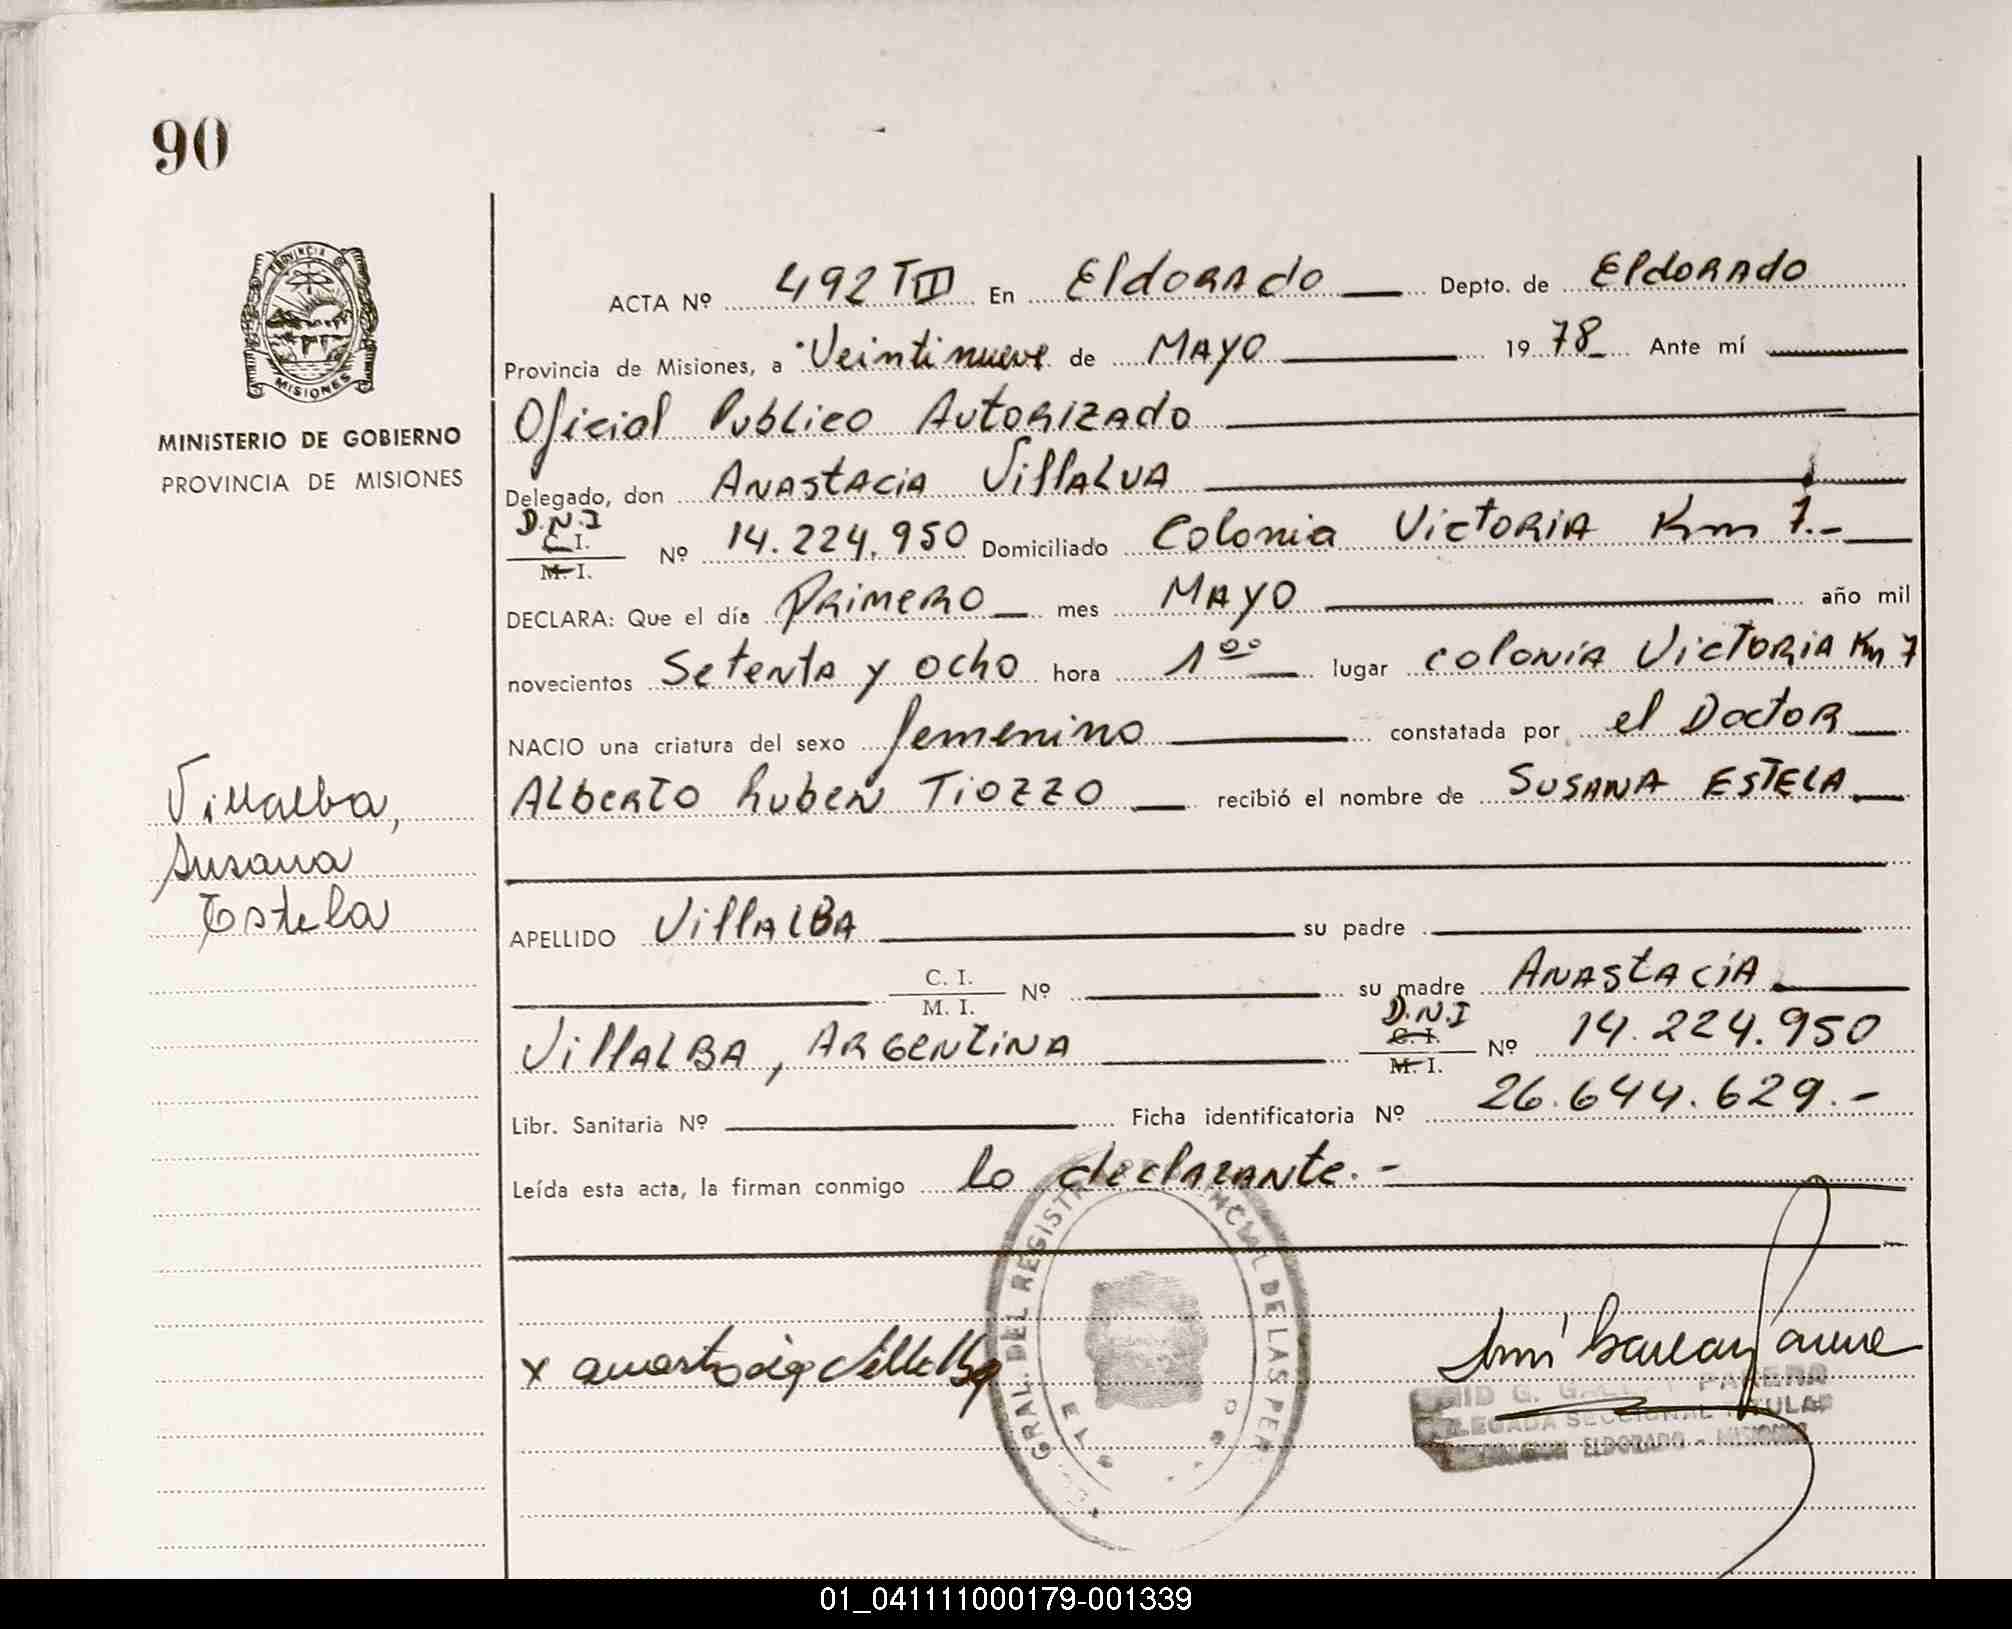 90
PROVINCIA DE
MISIONES
MINISTERIO DE GOBIERNO
PROVINCIA DE MISIONES
Villalba,
Susana
Estela
ACTA Nº 492 TII En Eldorado Depto. de Eldorado
Provincia de Misiones, a Veintinueve de Mayo 1978 Ante mí
Oficial Publico Autorizado
Delegado, don Anastacia Villalva
D.N.I
C. I.
M. I.
Nº 14.224.950 Domiciliado Colonia Victoria Km 7.-
DECLARA: Que el día Primero mes Mayo año mil
novecientos Setenta y ocho hora 1⁰⁰ lugar colonia Victoria Km 7
NACIO una criatura del sexo femenino constatada por el Doctor
Alberto Ruben Tiozzo recibió el nombre de SUSANA ESTELA
APELLIDO Villalba su padre
C. I.
M. I.
Nº su madre Anastacia
Villalba, Argentina D.N.I
C. I.
M. I.
Nº 14.224.950
Libr. Sanitaria Nº Ficha identificatoria Nº 26.644.629.-
Leída esta acta, la firman conmigo lo declarante.-
x anastacia Villalba
GRAL. DEL REGISTR NCIAL DE LAS PER
G. PARERA
LEGADA SECCIONAL TITULAR
ELDORADO - MISIONES
01_041111000179-001339